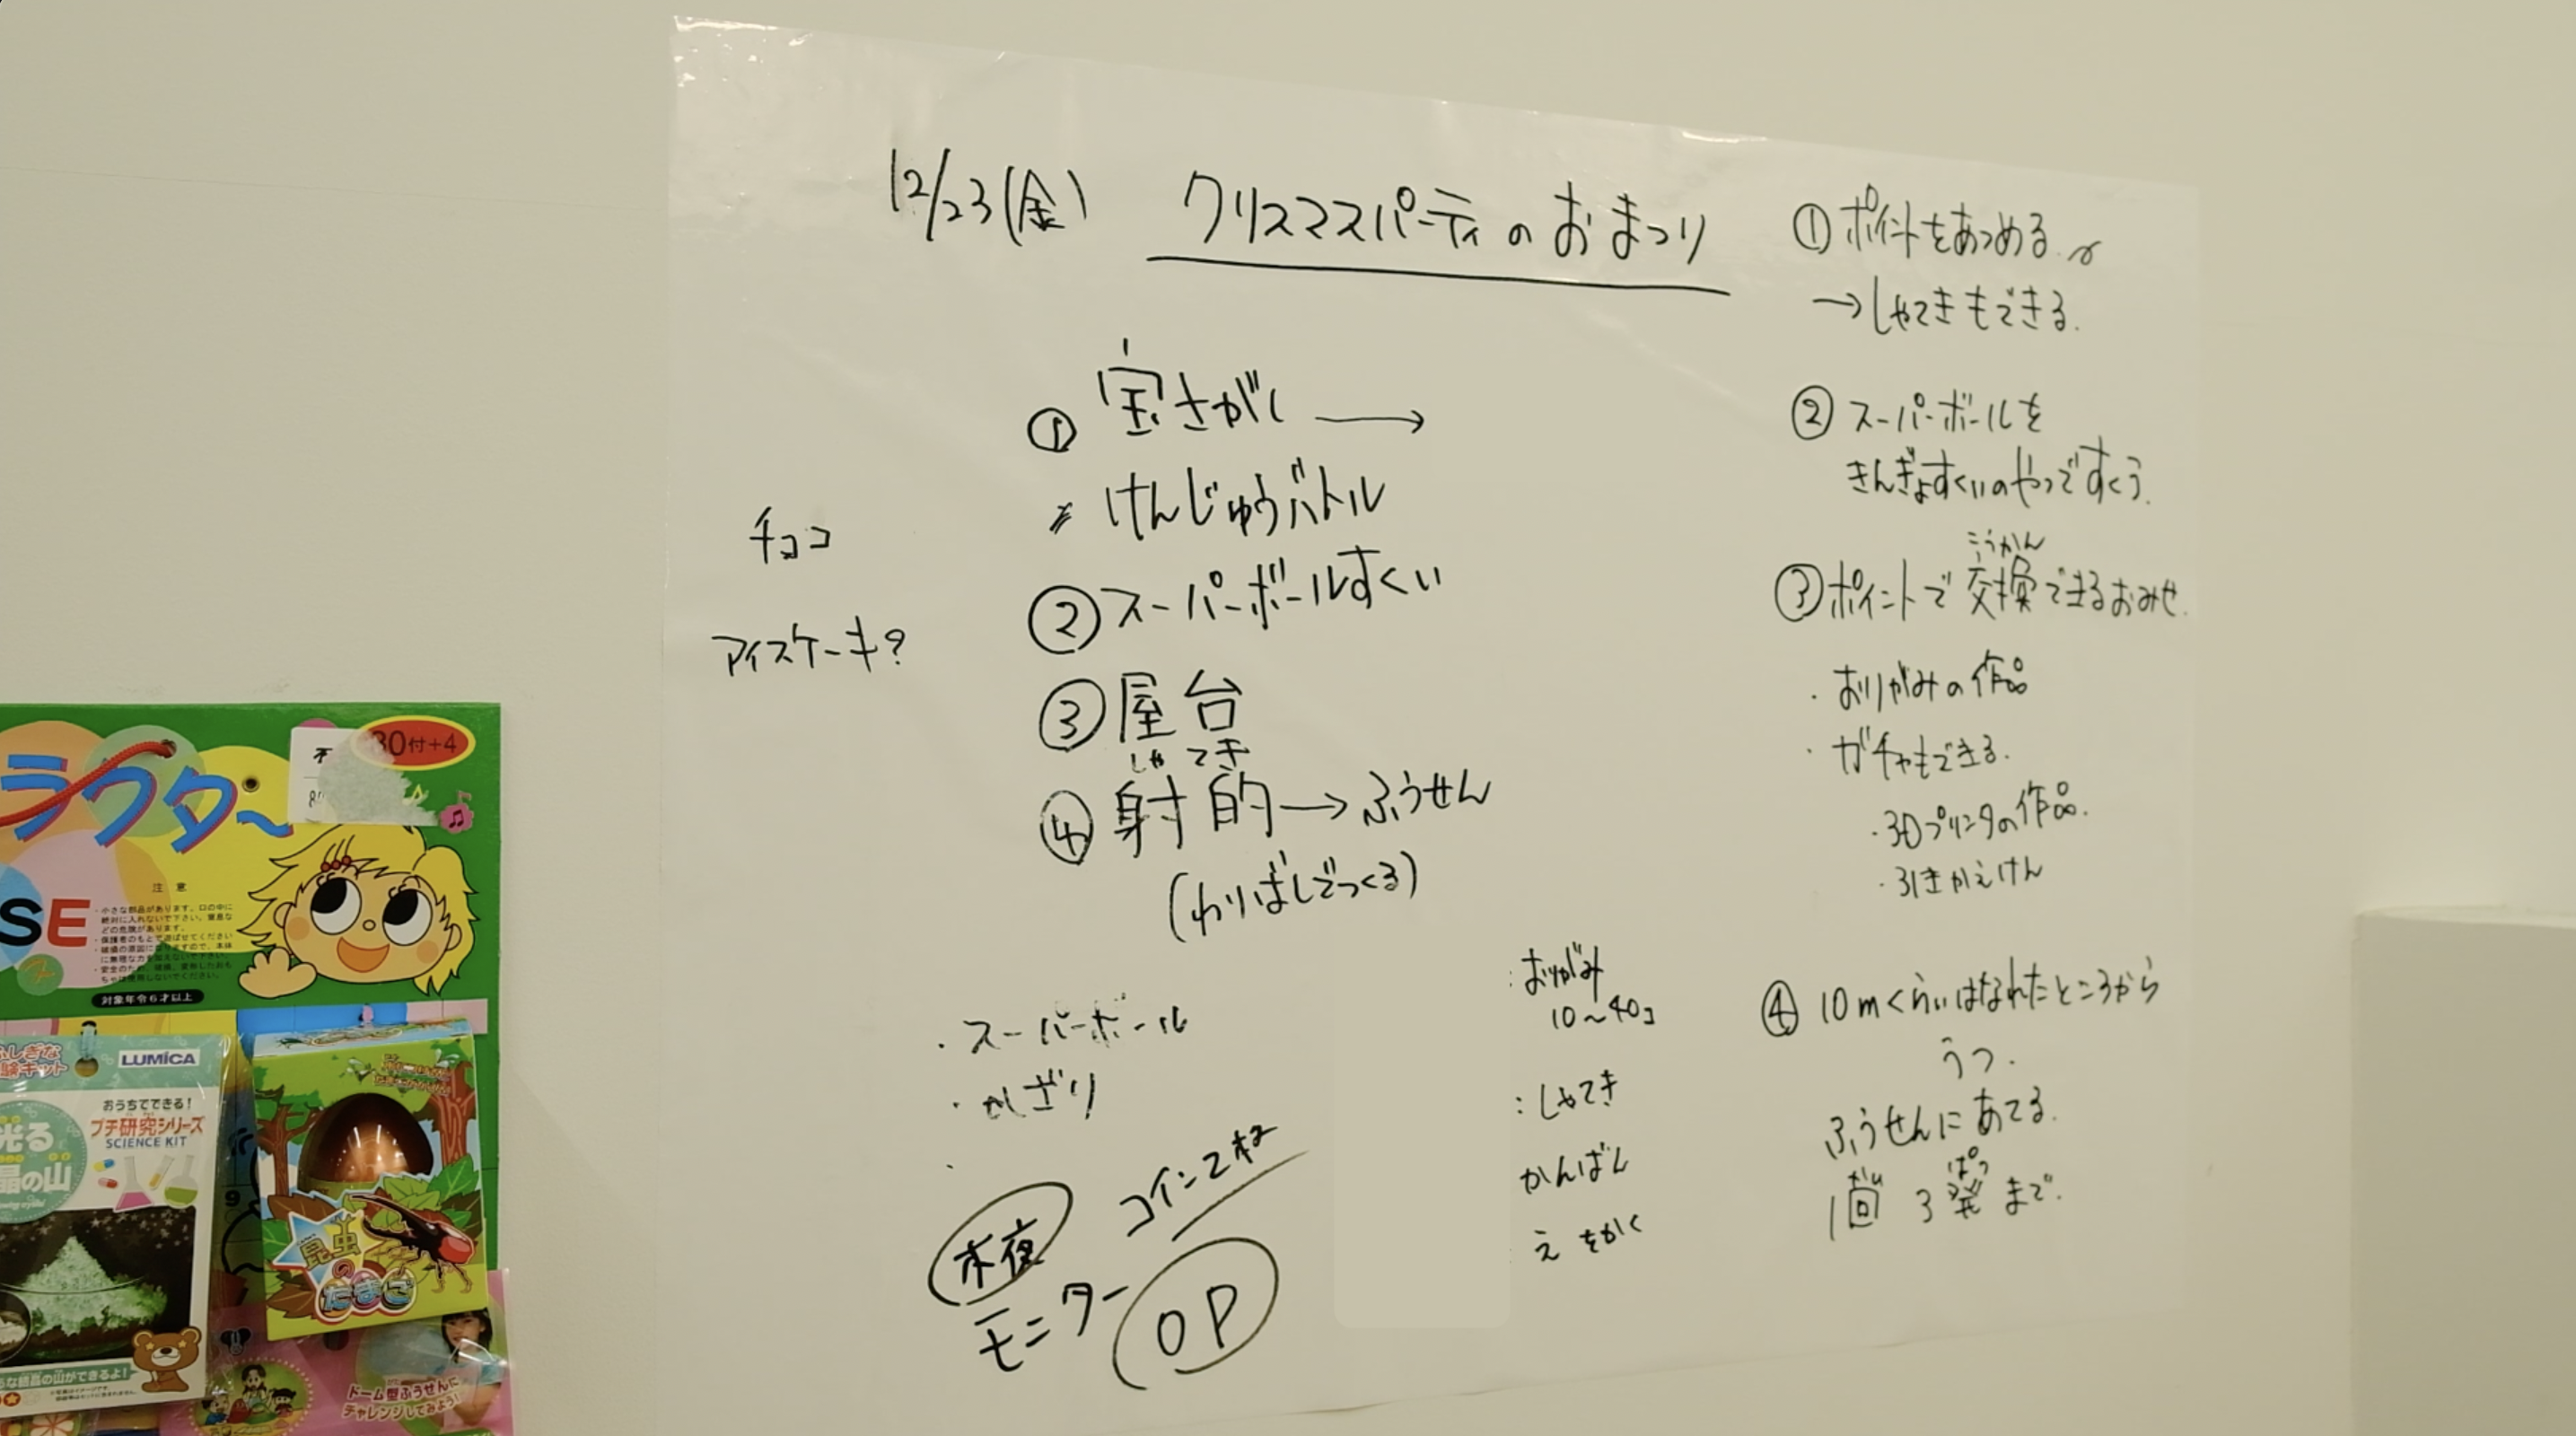 12/23(金)
クリスマスパーティのおまつり
① 宝さがし →
けんじゅうバトル
② スーパーボールすくい
③ 屋台
しゃてき
④ 射的 → ふうせん
(わりばしでつくる)
チョコ
アイスケーキ?
・スーパーボール
・かざり
・
コイン2枚
モニター
OP
① ポイントをあつめる。
→しゃてきもできる.
② スーパーボールを
きんぎょすくいのやつですくう.
こうかん
③ ポイントで交換できるおみせ.
・おりがみの作品
・ガチャもできる.
・3Dプリンタの作品.
・引きかえけん
④ 10mくらいはなれたところから
うつ.
ふうせんにあてる.
かい ぱつ
1回 3発 まで.
:おりがみ
10〜40コ
:しゃてき
かんばん
え をかく
ラクター
80付+4
SE
注 意
対象年令6才以上
ふしぎな
験キット
LUMICA
おうちでできる!
プチ研究シリーズ
SCIENCE KIT
光る
晶の山
昆虫
の
たまご
うな結晶の山ができるよ!
ドーム型ふうせんに
チャレンジしてみよう!